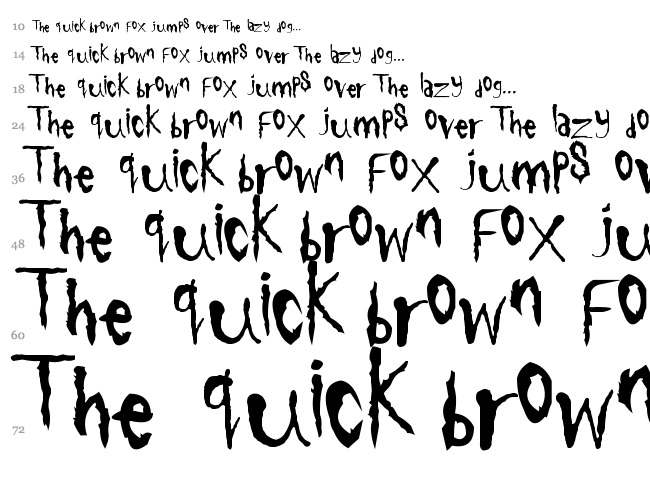 10 The quick brown fox jumps over The lazy dog...
14 The quick brown fox jumps over The lazy dog...
18 The quick brown fox jumps over The lazy dog...
24 The quick brown fox jumps over The lazy do
36 The quick brown fox jumps ov
48 The quick brown fox ju
60 The quick brown fo
72 The quick brown